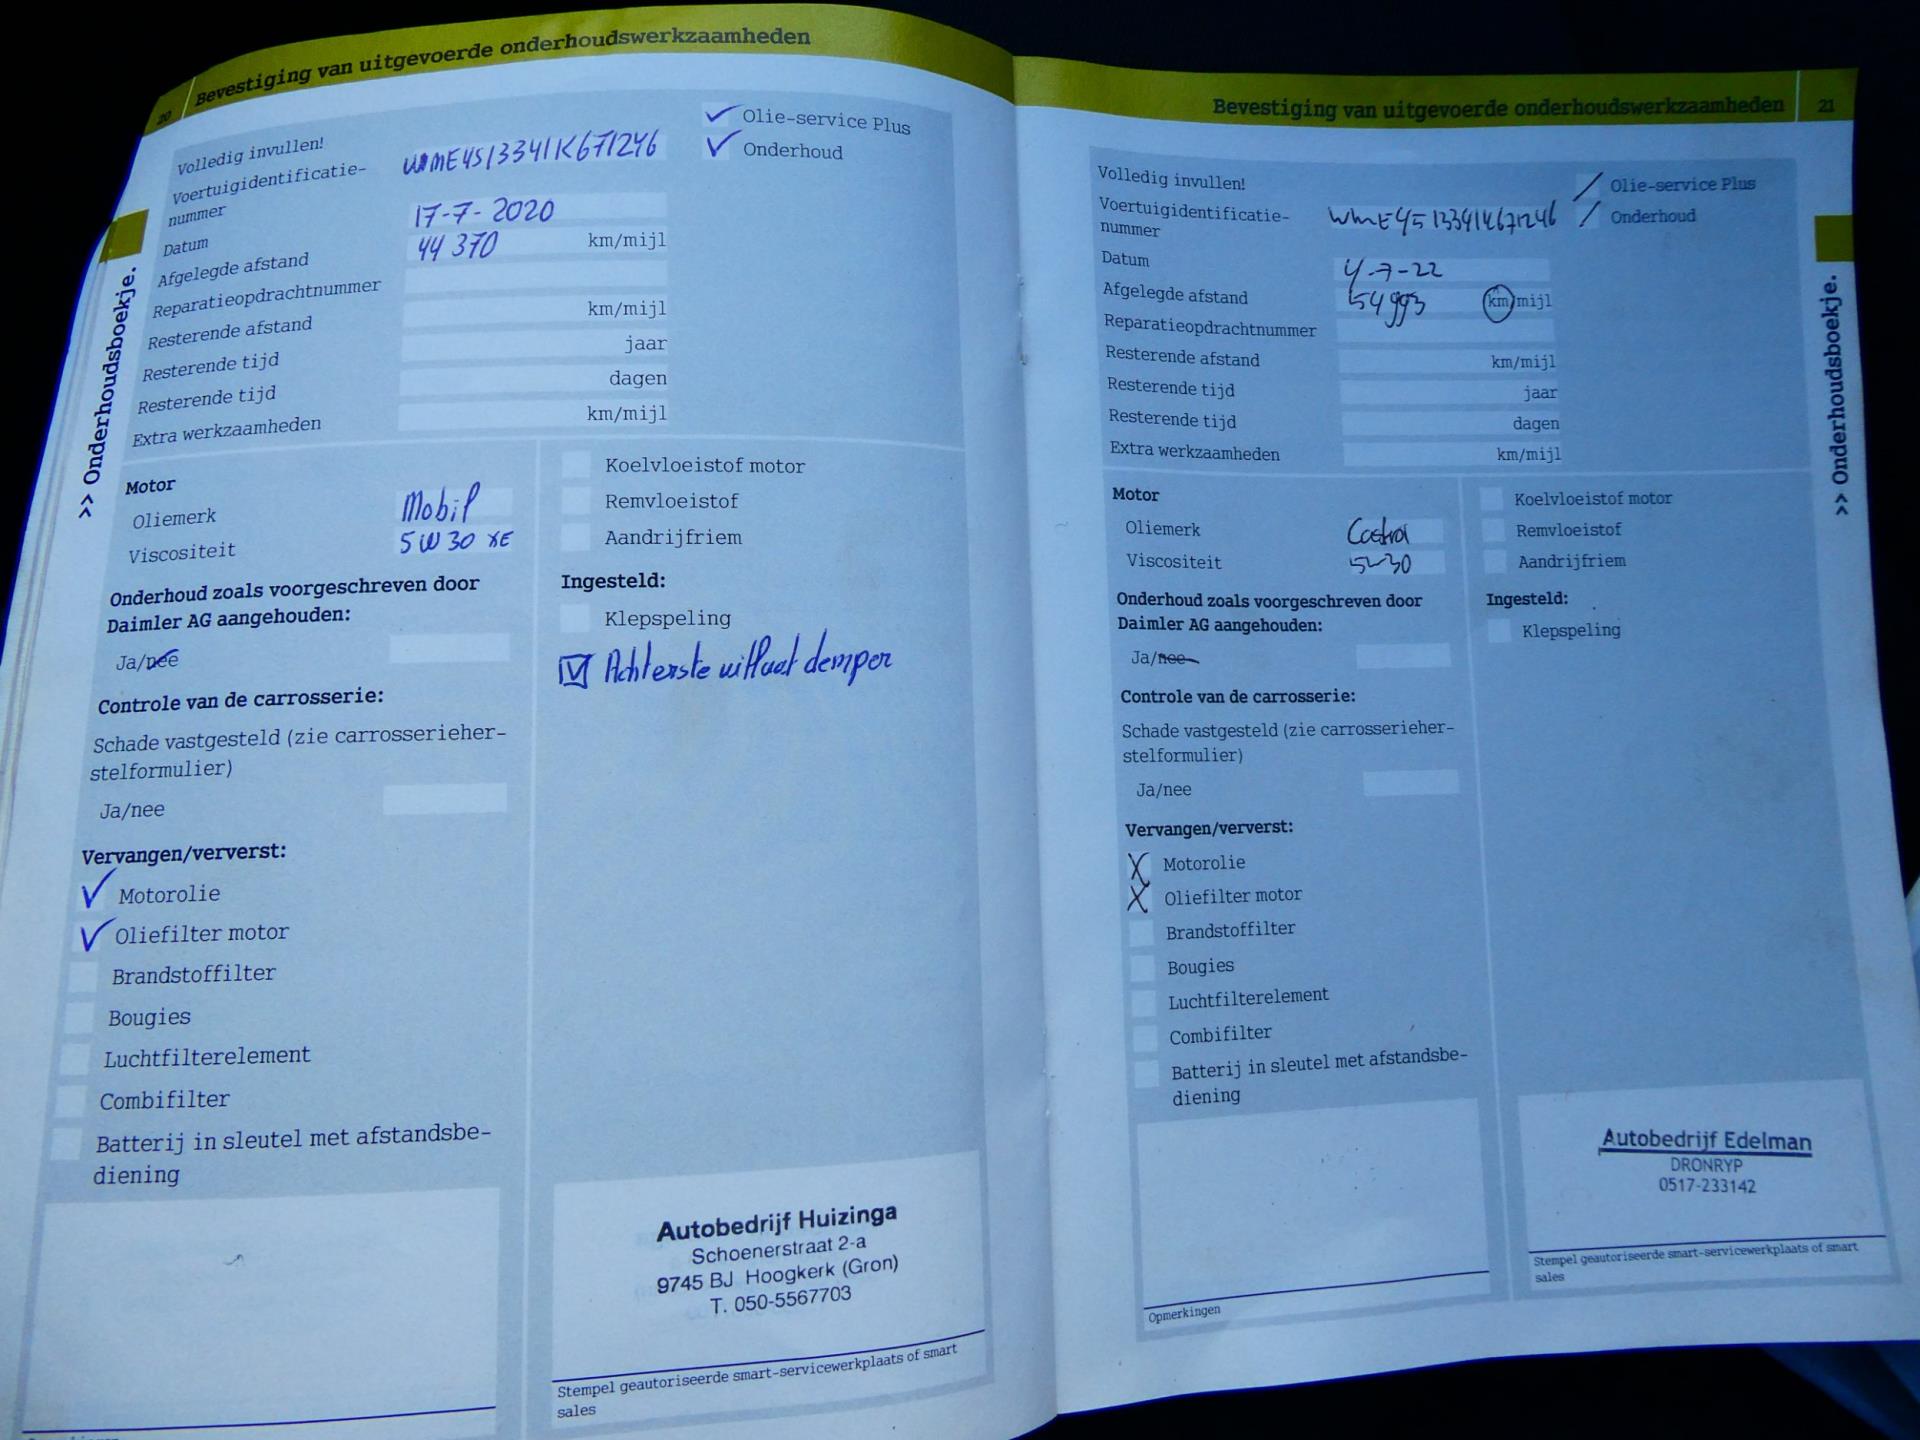 20 Bevestiging van uitgevoerde onderhoudswerkzaamheden
>> Onderhoudsboekje.
Volledig invullen!
Voertuigidentificatie-
nummer WME4513341K671246
Datum 17-7-2020
Afgelegde afstand 44 370 km/mijl
Reparatieopdrachtnummer
Resterende afstand km/mijl
Resterende tijd jaar
Resterende tijd dagen
Extra werkzaamheden km/mijl
Olie-service Plus
Onderhoud
Motor
Oliemerk Mobil
Viscositeit 5W30 XE
Onderhoud zoals voorgeschreven door
Daimler AG aangehouden:
Ja/nee
Controle van de carrosserie:
Schade vastgesteld (zie carrosserieher-
stelformulier)
Ja/nee
Vervangen/ververst:
Motorolie
Oliefilter motor
Brandstoffilter
Bougies
Luchtfilterelement
Combifilter
Batterij in sleutel met afstandsbe-
diening
Koelvloeistof motor
Remvloeistof
Aandrijfriem
Ingesteld:
Klepspeling
Achterste uitlaat demper
Autobedrijf Huizinga
Schoenerstraat 2-a
9745 BJ Hoogkerk (Gron)
T. 050-5567703
Stempel geautoriseerde smart-servicewerkplaats of smart
sales
Bevestiging van uitgevoerde onderhoudswerkzaamheden 21
>> Onderhoudsboekje.
Volledig invullen!
Voertuigidentificatie-
nummer WME4513341K671246
Datum 4-7-22
Afgelegde afstand 54993 km/mijl
Reparatieopdrachtnummer
Resterende afstand km/mijl
Resterende tijd jaar
Resterende tijd dagen
Extra werkzaamheden km/mijl
Olie-service Plus
Onderhoud
Motor
Oliemerk Castrol
Viscositeit 5W30
Onderhoud zoals voorgeschreven door
Daimler AG aangehouden:
Ja/nee
Controle van de carrosserie:
Schade vastgesteld (zie carrosserieher-
stelformulier)
Ja/nee
Vervangen/ververst:
Motorolie
Oliefilter motor
Brandstoffilter
Bougies
Luchtfilterelement
Combifilter
Batterij in sleutel met afstandsbe-
diening
Opmerkingen
Koelvloeistof motor
Remvloeistof
Aandrijfriem
Ingesteld:
Klepspeling
Autobedrijf Edelman
DRONRYP
0517-233142
Stempel geautoriseerde smart-servicewerkplaats of smart
sales